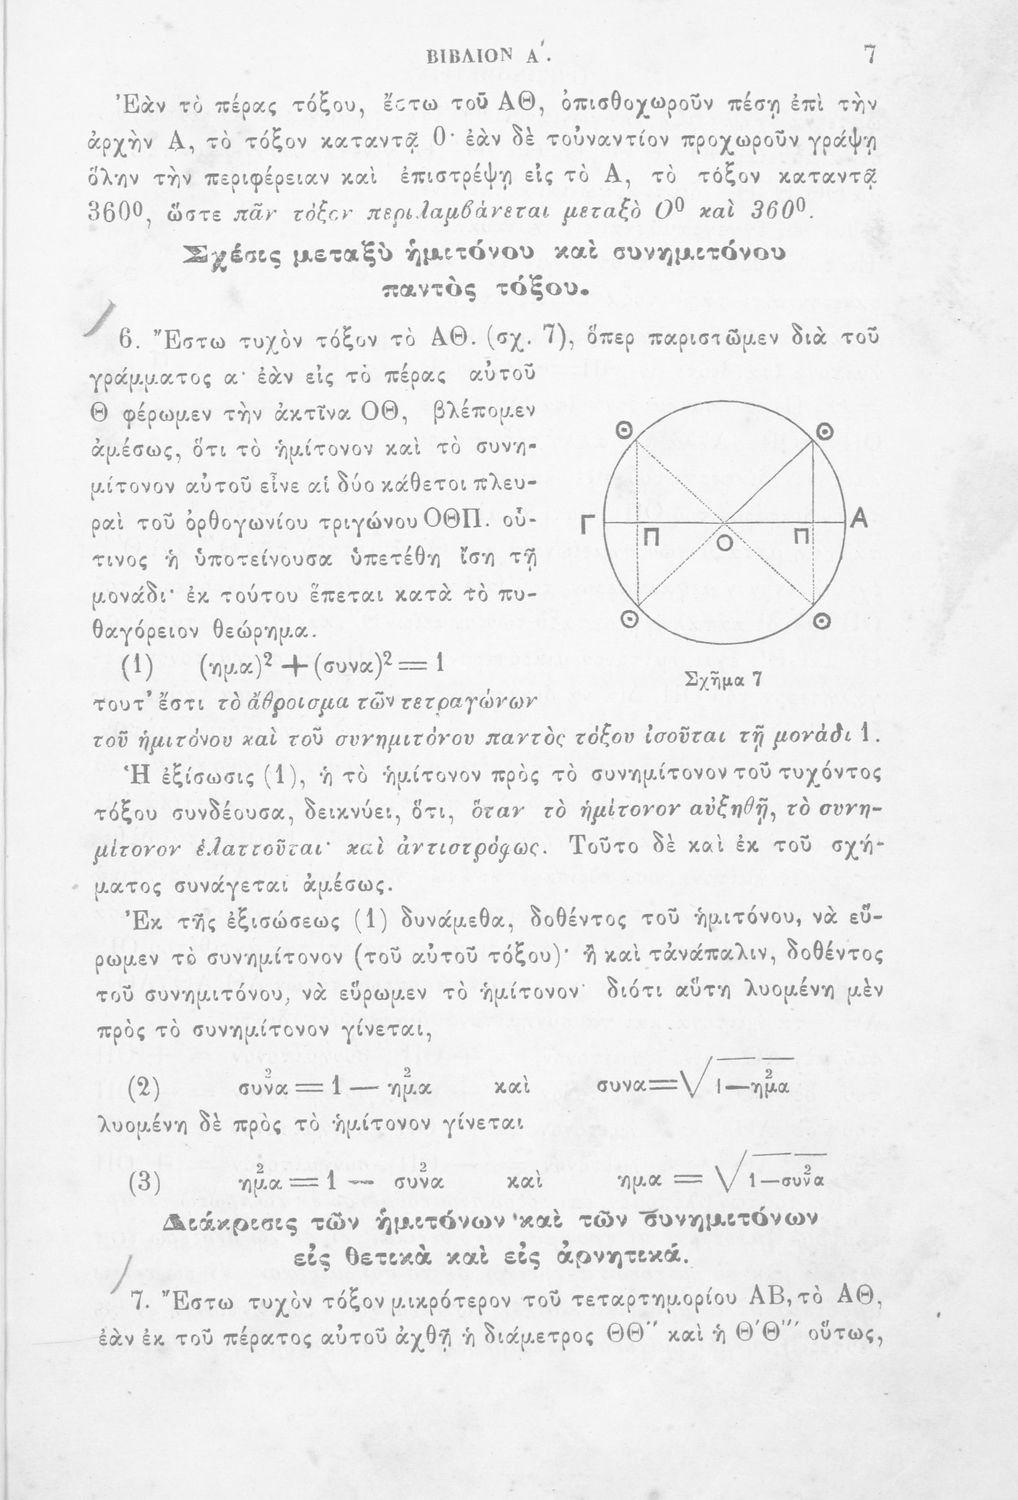 ΒΙΒΛΙΟΝ Α΄. 7
Ἐὰν τὸ πέρας τόξου, ἔστω τοῦ ΑΘ, ὀπισθοχωροῦν πέσῃ ἐπὶ τὴν
ἀρχὴν Α, τὸ τόξον καταντᾷ 0· ἐὰν δὲ τοὐναντίον προχωροῦν γράψῃ
ὅλην τὴν περιφέρειαν καὶ ἐπιστρέψῃ εἰς τὸ Α, τὸ τόξον καταντᾷ
360⁰, ὥστε πᾶν τόξον περιλαμβάνεται μεταξὺ 0⁰ καὶ 360⁰.
Σχέσις μεταξὺ ἡμιτόνου καὶ συνημιτόνου
παντὸς τόξου.
6. Ἔστω τυχὸν τόξον τὸ ΑΘ. (σχ. 7), ὅπερ παριστῶμεν διὰ τοῦ
γράμματος α· ἐὰν εἰς τὸ πέρας αὐτοῦ
Θ φέρωμεν τὴν ἀκτῖνα ΟΘ, βλέπομεν
ἀμέσως, ὅτι τὸ ἡμίτονον καὶ τὸ συνη-
μίτονον αὐτοῦ εἶνε αἱ δύο κάθετοι πλευ-
ραὶ τοῦ ὀρθογωνίου τριγώνου ΟΘΠ. οὗ-
τινος ἡ ὑποτείνουσα ὑπετέθη ἴση τῇ
μονάδι· ἐκ τούτου ἕπεται κατὰ τὸ πυ-
θαγόρειον θεώρημα.
(1) (ημα)² + (συνα)² = 1
τουτ' ἔστι τὸ ἄθροισμα τῶν τετραγώνων
Θ Θ
Γ Π Ο Π Α
Θ Θ
Σχῆμα 7
τοῦ ἡμιτόνου καὶ τοῦ συνημιτόνου παντὸς τόξου ἰσοῦται τῇ μονάδι 1.
Ἡ ἐξίσωσις (1), ἡ τὸ ἡμίτονον πρὸς τὸ συνημίτονον τοῦ τυχόντος
τόξου συνδέουσα, δεικνύει, ὅτι, ὅταν τὸ ἡμίτονον αὐξηθῇ, τὸ συνη-
μίτονον ἐλαττοῦται· καὶ ἀντιστρόφως. Τοῦτο δὲ καὶ ἐκ τοῦ σχή-
ματος συνάγεται ἀμέσως.
Ἐκ τῆς ἐξισώσεως (1) δυνάμεθα, δοθέντος τοῦ ἡμιτόνου, νὰ εὕ-
ρωμεν τὸ συνημίτονον (τοῦ αὐτοῦ τόξου)· ἢ καὶ τἀνάπαλιν, δοθέντος
τοῦ συνημιτόνου, νὰ εὕρωμεν τὸ ἡμίτονον· διότι αὕτη λυομένη μὲν
πρὸς τὸ συνημίτονον γίνεται,
(2) συν²α = 1 — ημ²α καὶ συνα = √1—ημ²α
λυομένη δὲ πρὸς τὸ ἡμίτονον γίνεται
(3) ημ²α = 1 — συν²α καὶ ημα = √1—συν²α
Διάκρισις τῶν ἡμιτόνων καὶ τῶν συνημιτόνων
εἰς θετικὰ καὶ εἰς ἀρνητικά.
7. Ἔστω τυχὸν τόξον μικρότερον τοῦ τεταρτημορίου ΑΒ, τὸ ΑΘ,
ἐὰν ἐκ τοῦ πέρατος αὐτοῦ ἀχθῇ ἡ διάμετρος ΘΘ″ καὶ ἡ Θ′Θ‴ οὕτως,